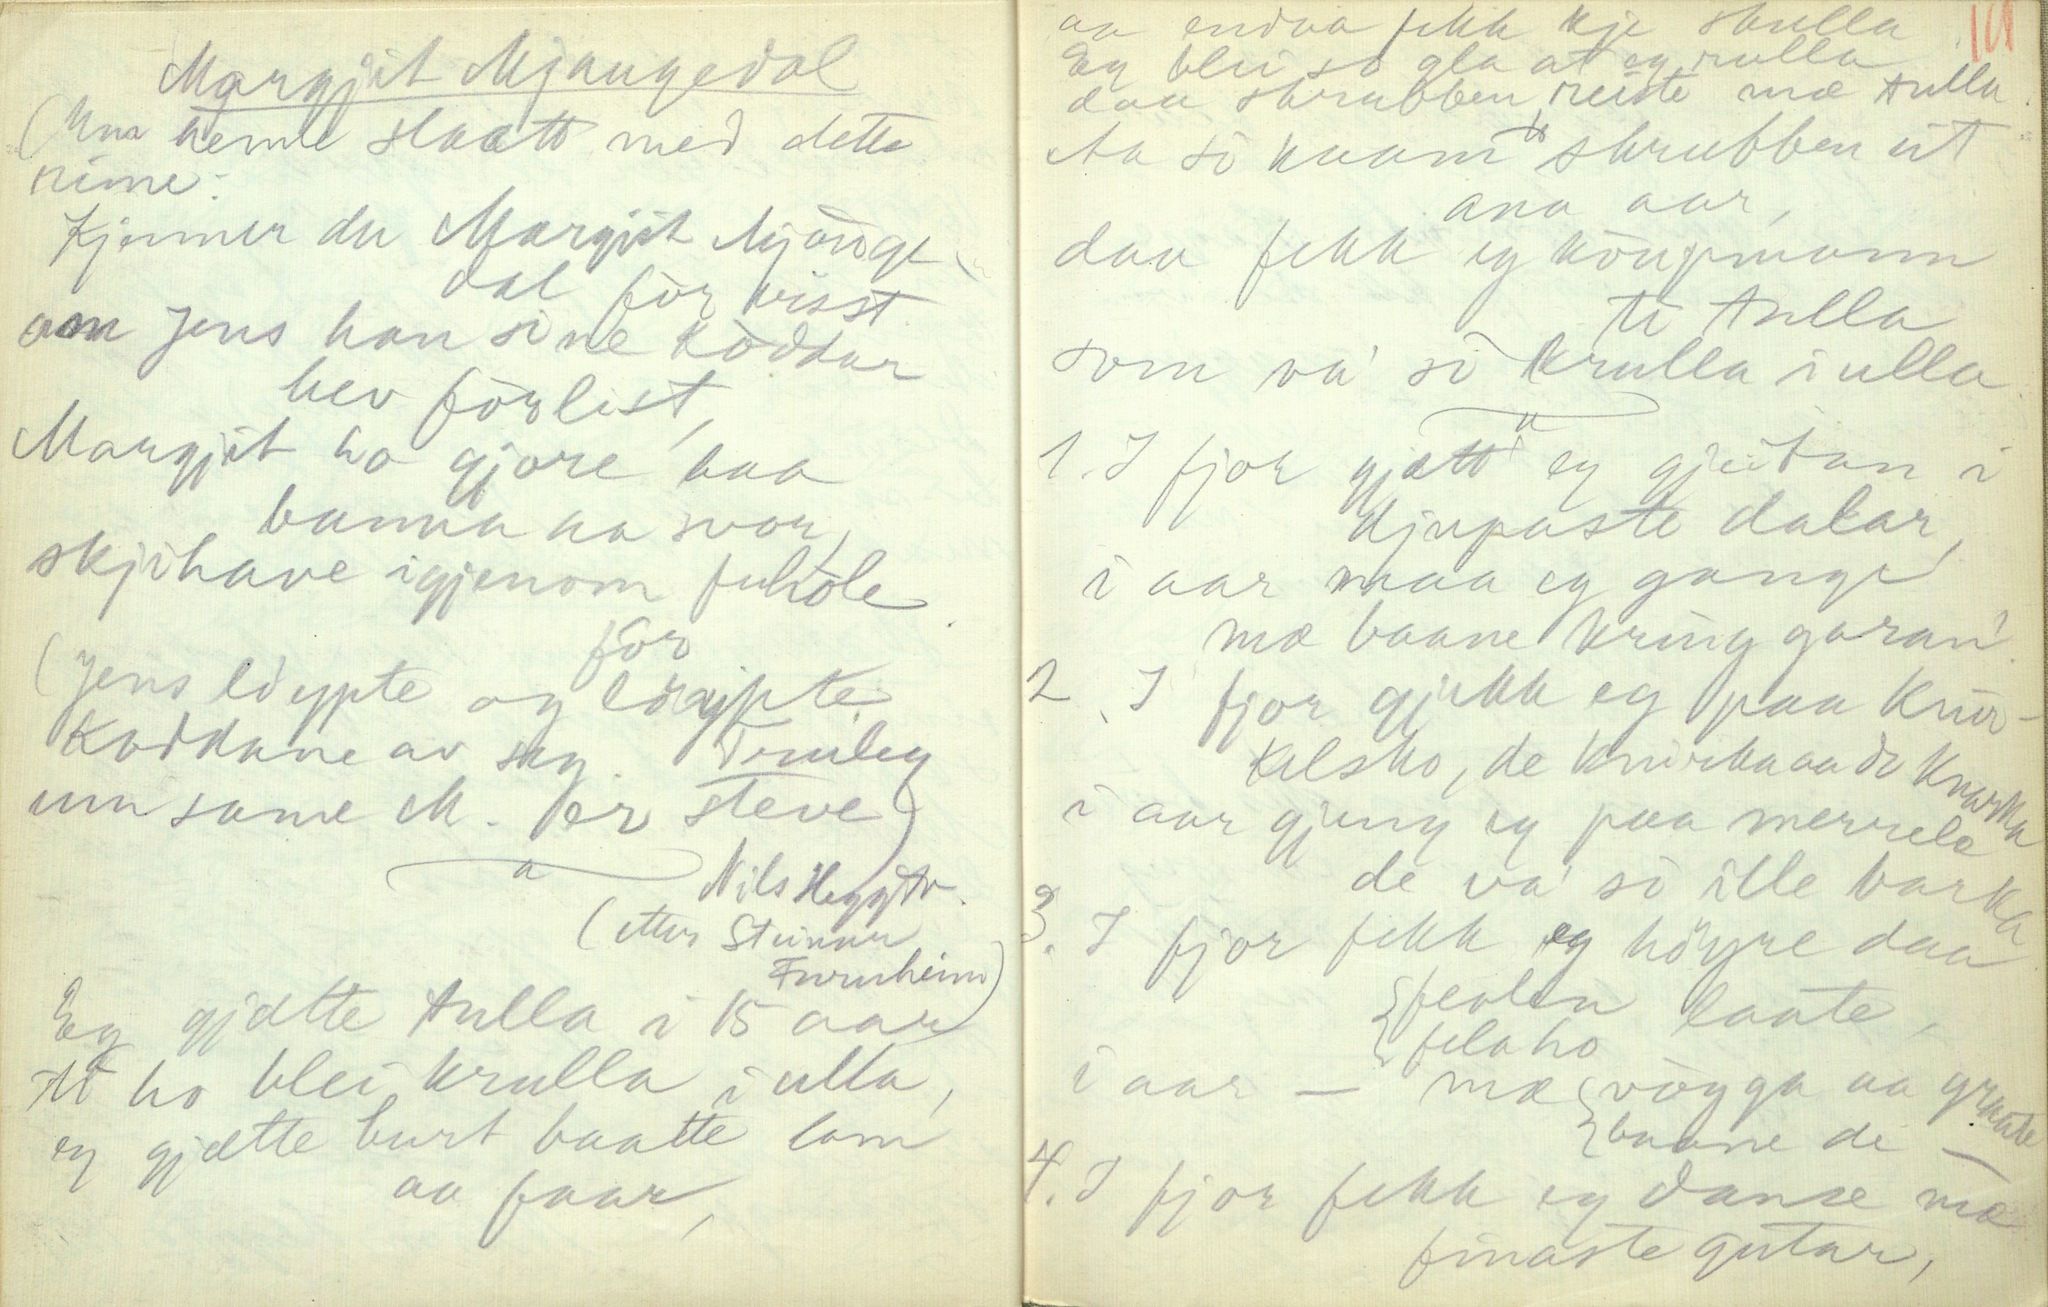 Margjit Mjaugedal
(Un kjenne slaatt med dette
rime:
Kjenner du Margjit Mjauge
dal för visst
om Jens han sine koddar
hev förlist,
Margjit ho gjore baa
banna aa svor,
skjihave igjenom
för
(Jens löypte og löypte
koddane av seg. Truleg
um same M. er steve)
Nils Heggtv.
(etter Steinar
Furuheim)
Eg gjætte tulla i 15 aar
te ho blei krulla i ulla,
eg gjætte burt baatte lam
aa faar,
101
aa endaa fekk kje skulla
Eg blei so gla at eg rulla
daa skrubben reiste mæ tulla.
Aa so kaam skrubben út
ana aar,
daa fekk eg kaupmann
te tulla
som va' so krulla i ulla
1. I fjor gjætt eg gjeitan i
djupaste dalar,
i aar maa eg gange
mæ baane kring garan.
2. I fjor gjekk eg paa knir-
kelsko, de knirka aa de knarka
i aar gjeng eg paa
de va' so ille barka
3. I fjor fekk eg höyre daa
felen laate,
fela ho
i aar — mæ vögga aa graate
baane de —
4. I fjor fekk eg danse mæ
finaste gutar,